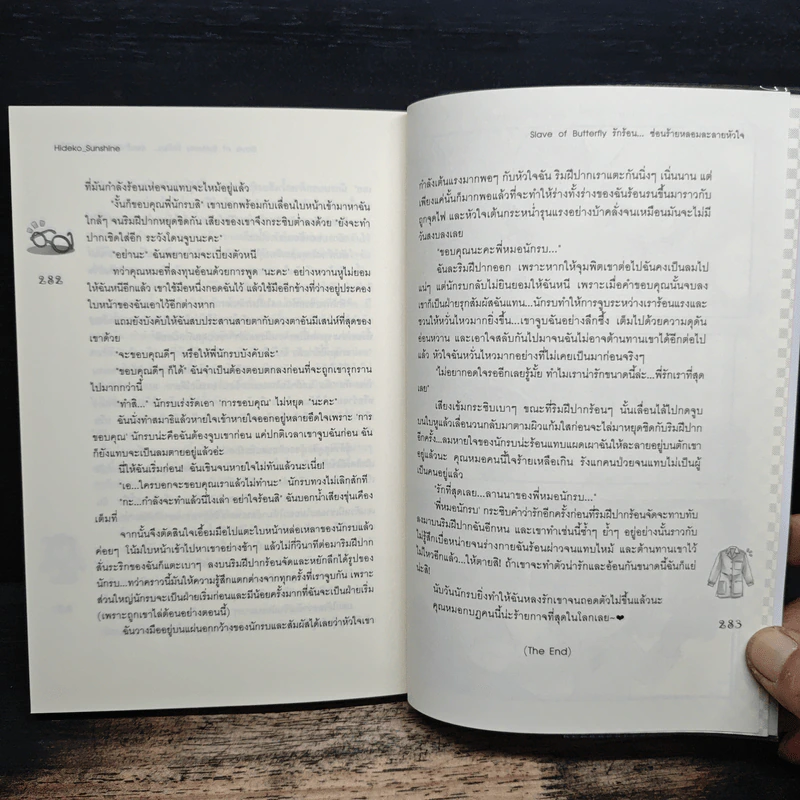 Hideko_Sunshine
ที่มันกำลังร้อนเห่อจนแทบจะไหม้อยู่แล้ว
"งั้นก็ขอบคุณพี่นักรบสิ" เขาบอกพร้อมกับเลื่อนใบหน้าเข้ามาหาฉัน
ใกล้ๆ จนริมฝีปากหยุดชิดกัน เสียงของเขาจึงกระซิบต่ำลงด้วย "ยังจะทำ
ปากเชิดใส่อีก ระวังโดนจูบนะคะ"
"อย่านะ" ฉันพยายามจะเบี่ยงตัวหนี
ทว่าคุณหมอที่ลงทุนอ้อนด้วยการพูด 'นะคะ' อย่างหวานหูไม่ยอม
ให้ฉันหนีอีกแล้ว เขาใช้มือหนึ่งกอดฉันไว้ แล้วใช้มืออีกข้างที่ว่างอยู่ประคอง
ใบหน้าของฉันเอาไว้อีกต่างหาก
แถมยังบังคับให้ฉันสบประสานสายตากับดวงตาอันมีเสน่ห์ที่สุดของ
เขาด้วย
"จะขอบคุณดีๆ หรือให้พี่นักรบบังคับล่ะ"
"ขอบคุณดีๆ ก็ได้" ฉันจำเป็นต้องตอบตกลงก่อนที่จะถูกเขารุกราน
ไปมากกว่านี้
"ทำสิ..." นักรบเร่งรัดเอา 'การขอบคุณ' ไม่หยุด "นะคะ"
ฉันนั่งทำสมาธิแล้วหายใจเข้าหายใจออกอยู่หลายอึดใจเพราะ 'การ
ขอบคุณ' นักรบน่ะคือฉันต้องจูบเขาก่อน แค่ปกติเวลาเขาจูบฉันก่อน ฉัน
ก็ยังแทบจะเป็นลมตายอยู่แล้วอ่ะ
นี่ให้ฉันเริ่มก่อน! ฉันเขินจนหายใจไม่ทันแล้วนะเนี่ย!
"เอ...ใครบอกจะขอบคุณเราแล้วไม่ทำนะ" นักรบทวงไม่เลิกสักที
"กะ...กำลังจะทำแล้วนี่ไงเล่า อย่าใจร้อนสิ" ฉันบอกน้ำเสียงขุ่นเคือง
เต็มที่
จากนั้นจึงตัดสินใจเอื้อมมือไปแตะใบหน้าหล่อเหลาของนักรบแล้ว
ค่อยๆ โน้มใบหน้าเข้าไปหาเขาอย่างช้าๆ แล้วไม่กี่วินาทีต่อมาริมฝีปาก
สั่นระริกของฉันก็แตะเบาๆ ลงบนริมฝีปากร้อนจัดและหยักลึกได้รูปของ
นักรบ...ทว่าคราวนี้มันให้ความรู้สึกแตกต่างจากทุกครั้งที่เราจูบกัน เพราะ
ส่วนใหญ่นักรบจะเป็นฝ่ายเริ่มก่อนและมีน้อยครั้งมากที่ฉันจะเป็นฝ่ายเริ่ม
(เพราะถูกเขาไล่ต้อนอย่างตอนนี้)
ฉันวางมืออยู่บนแผ่นอกกว้างของนักรบและสัมผัสได้เลยว่าหัวใจเขา
282
Slave of Butterfly รักร้อน... ซ่อนร้ายหลอมละลายหัวใจ
กำลังเต้นแรงมากพอๆ กับหัวใจฉัน ริมฝีปากเราแตะกันนิ่งๆ เนิ่นนาน แต่
เพียงแค่นั้นก็มากพอแล้วที่จะทำให้ร่างทั้งร่างของฉันร้อนรนขึ้นมาราวกับ
ถูกจุดไฟ และหัวใจเต้นกระหน่ำรุนแรงอย่างบ้าคลั่งจนเหมือนมันจะไม่มี
วันสงบลงเลย
"ขอบคุณนะคะพี่หมอนักรบ..."
ฉันละริมฝีปากออก เพราะหากให้จุมพิตเขาต่อไปฉันคงเป็นลมไป
แน่ๆ แต่นักรบกลับไม่ยินยอมให้ฉันหนี เพราะเมื่อคำขอบคุณนั้นจบลง
เขาก็เป็นฝ่ายรุกสัมผัสฉันแทน...นักรบทำให้การจูบระหว่างเราร้อนแรงและ
ชวนให้หวั่นไหวมากยิ่งขึ้น...เขาจูบฉันอย่างลึกซึ้ง เต็มไปด้วยความดุดัน
อ่อนหวาน และเอาใจสลับกันไปมาจนฉันไม่อาจต้านทานเขาได้อีกต่อไป
แล้ว หัวใจฉันหวั่นไหวมากอย่างที่ไม่เคยเป็นมาก่อนจริงๆ
"ไม่อยากอดใจรออีกเลยรู้มั้ย ทำไมเราน่ารักขนาดนี้ล่ะ...พี่รักเราที่สุด
เลย"
เสียงเข้มกระซิบเบาๆ ขณะที่ริมฝีปากร้อนๆ นั้นเลื่อนไล้ไปกดจูบ
บนใบหูแล้วเลื่อนวนกลับมาตามผิวแก้มใสก่อนจะไล่มาหยุดชิดกับริมฝีปาก
อีกครั้ง...ลมหายใจของนักรบน่ะร้อนแทบแผดเผาฉันให้ละลายอยู่บนตักเขา
อยู่แล้วนะ คุณหมอคนนี้ใจร้ายเหลือเกิน รังแกคนป่วยจนแทบไม่เป็นผู้
เป็นคนอยู่แล้ว
"รักที่สุดเลย...ลานนาของพี่หมอนักรบ..."
'พี่หมอนักรบ' กระซิบคำว่ารักอีกครั้งก่อนที่ริมฝีปากร้อนจัดจะทาบทับ
ลงมาบนริมฝีปากฉันอีกหน และเขาทำเช่นนี้ซ้ำๆ ย้ำๆ อยู่อย่างนั้นราวกับ
ไม่รู้สึกเบื่อหน่ายจนร่างกายฉันร้อนผ่าวจนแทบไหม้ และต้านทานเขาไว้
ไม่ไหวอีกแล้ว...ให้ตายสิ! ถ้าเขาจะทำตัวน่ารักและอ้อนกันขนาดนี้ฉันก็แย่
น่ะสิ!
นับวันนักรบยิ่งทำให้ฉันหลงรักเขาจนถอดตัวไม่ขึ้นแล้วนะ
คุณหมอกบฏคนนี้น่ะร้ายกาจที่สุดในโลกเลย~❤
283
(The End)